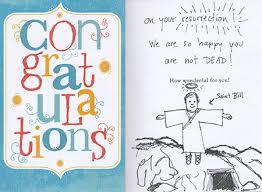 con
grat
ula
tions
on your resurrection!
We are so happy you
are not DEAD!
How wonderful for you!
Saint Bill